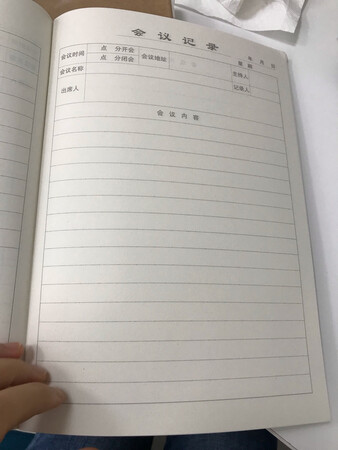 会议记录
年 月 日
会议时间 点 分开会 会议地址
点 分闭会
星期
会议名称 主持人
出席人 记录人
会议内容